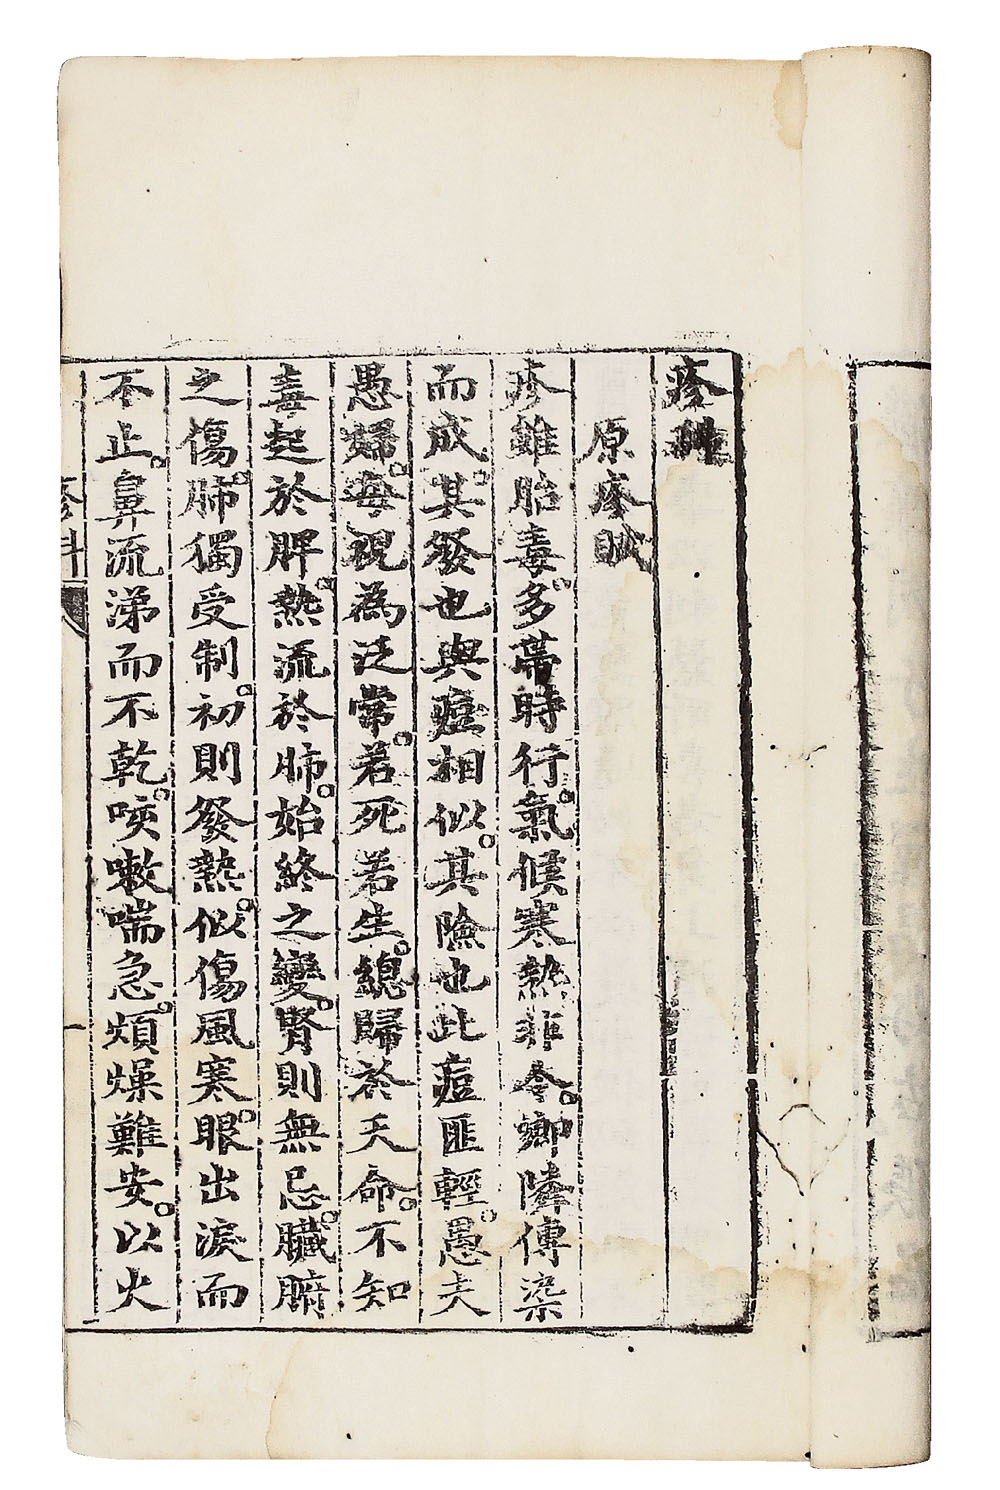 疹科
原疹賦
疹雖胎毒。多帶時行。氣候寒熱非令。鄉隣傳染
而成。其發也與痘相似。其險也比痘匪輕。愚夫
愚婦。每視為泛常。若死若生。總歸於天命。不知
毒起於脾。熱流於肺。始終之變。腎則無忌。臟腑
之傷。肺獨受制。初則發熱。似傷風寒。眼出淚而
不止。鼻流涕而不乾。咳嗽喘急。煩燥難安。以火
疹科